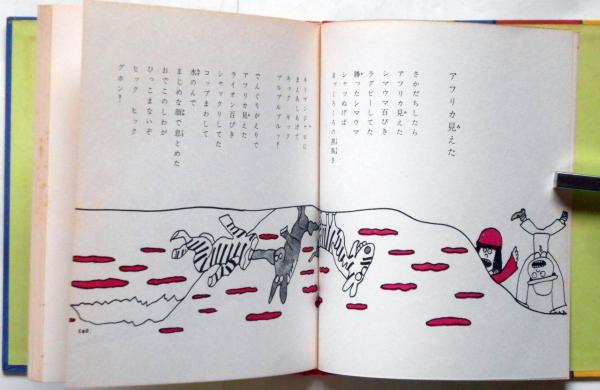 アフリカ見えた
さかだちしたら
アフリカ見えた
シマウマ百ぴき
ラグビーしてた
勝ったシマウマ
シャツぬげば
まっくろくろの黒馬さ
キリマンジャロに
まえあしあげて
キック キック
アルアルアルッ？
でんぐりがえりで
アフリカ見えた
ライオン百ぴき
シャックリしてた
コップまわして
水のんで
まじめな顔で息とめた
おでこのしわが
ひっこまないぞ
ヒック ヒック
グホン？